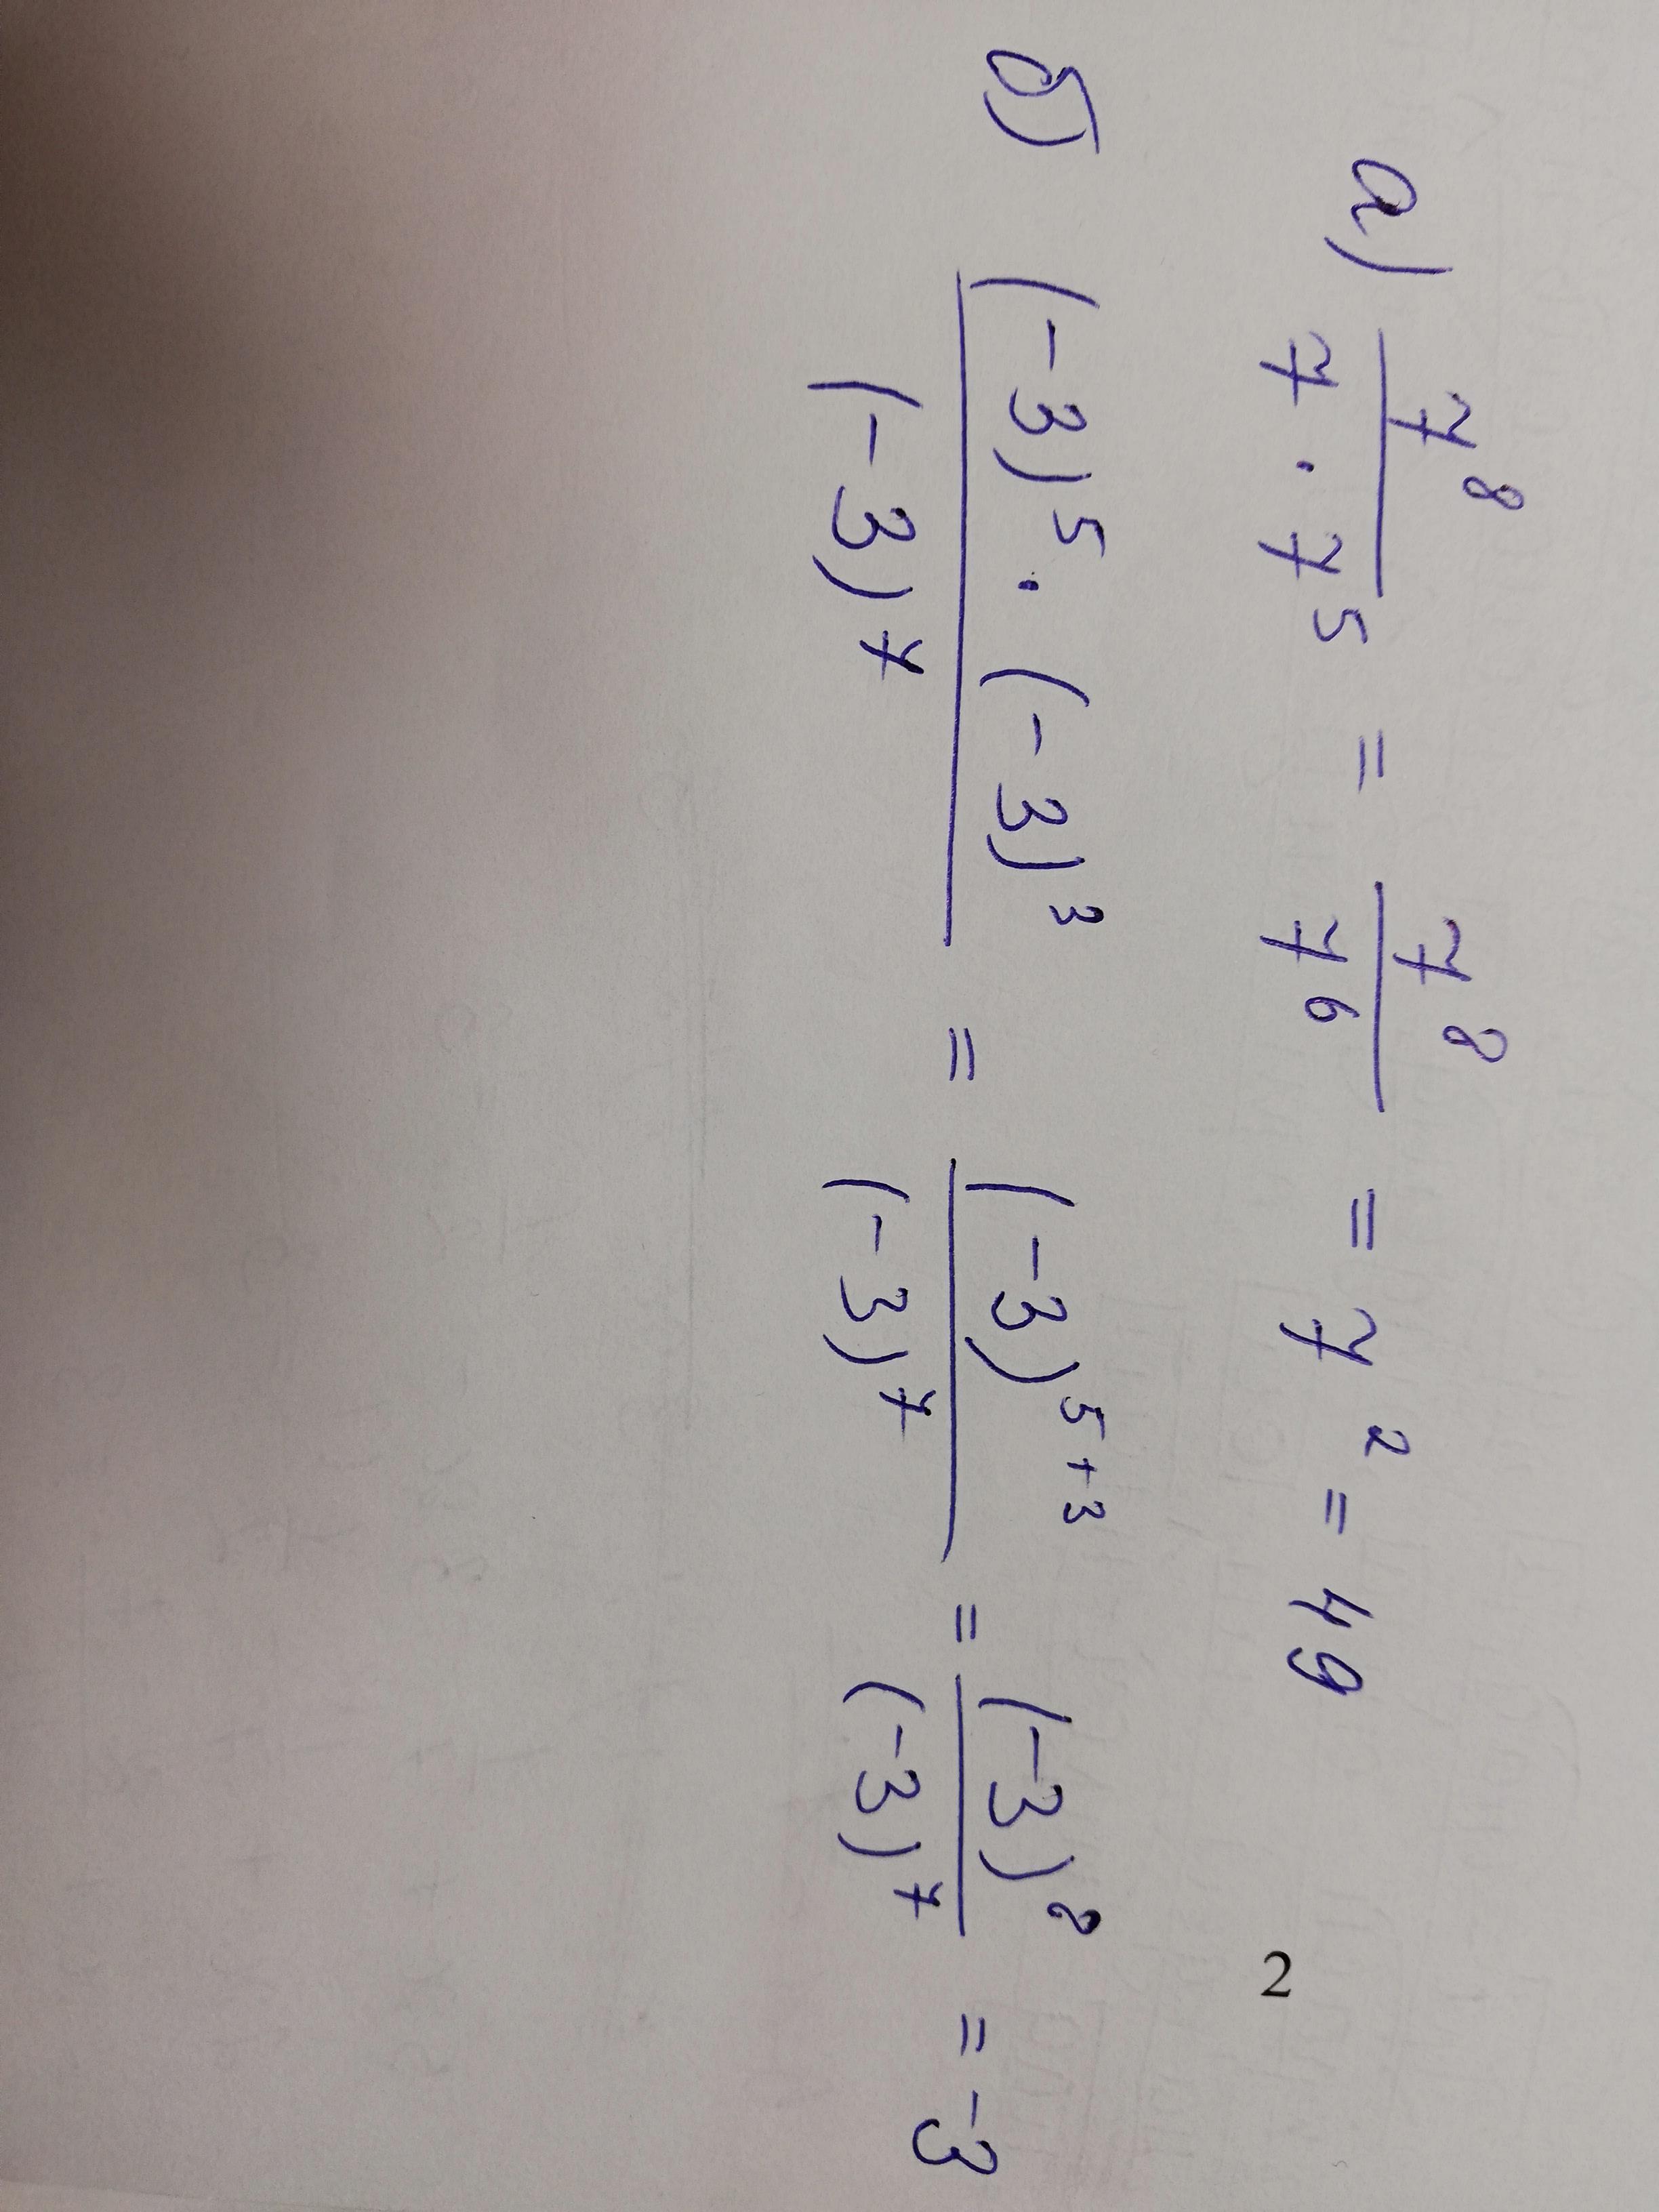 а) 7⁸/(7 · 7⁵) = 7⁸/7⁶ = 7² = 49
б) ((-3)⁵ · (-3)³)/(-3)⁷ = (-3)⁵⁺³/(-3)⁷ = (-3)⁸/(-3)⁷ = -3
2